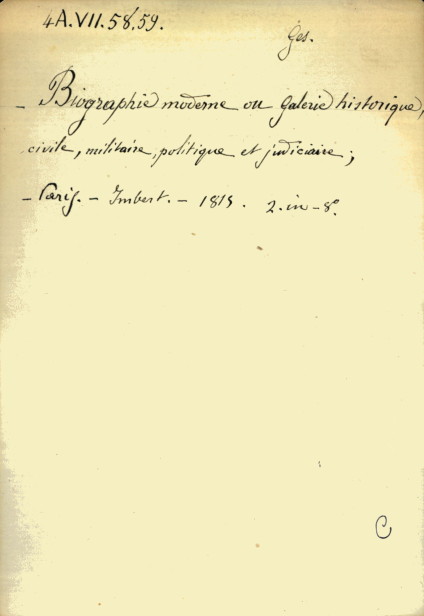 4A.VII.58.59.
Ges.
- Biographie moderne ou Galerie historique,
civile, militaire, politique et judiciaire;
- Paris. - Imbert. - 1815. 2. in-8°.
C